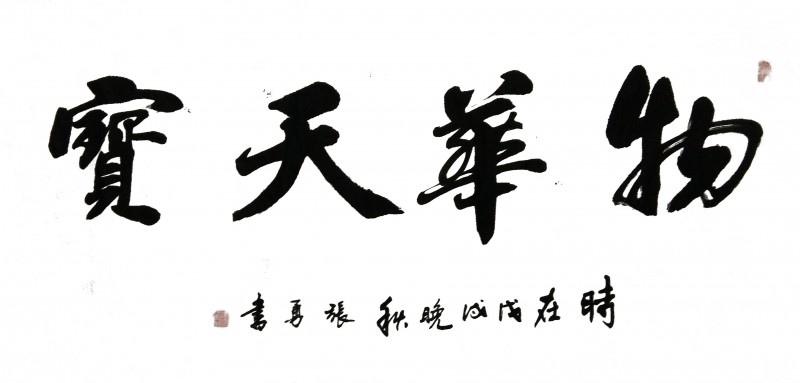 物華天寶
時在戊戌晚秋張勇書